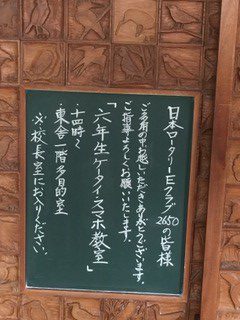 日本ロータリーEクラブ2650の皆様
ご多用の中お越しいただきありがとうございます。
ご指導よろしくお願いいたします。
「六年生ケータイ・スマホ教室」
・十四時～
・東舎一階多目的室
※校長室にお入りください。